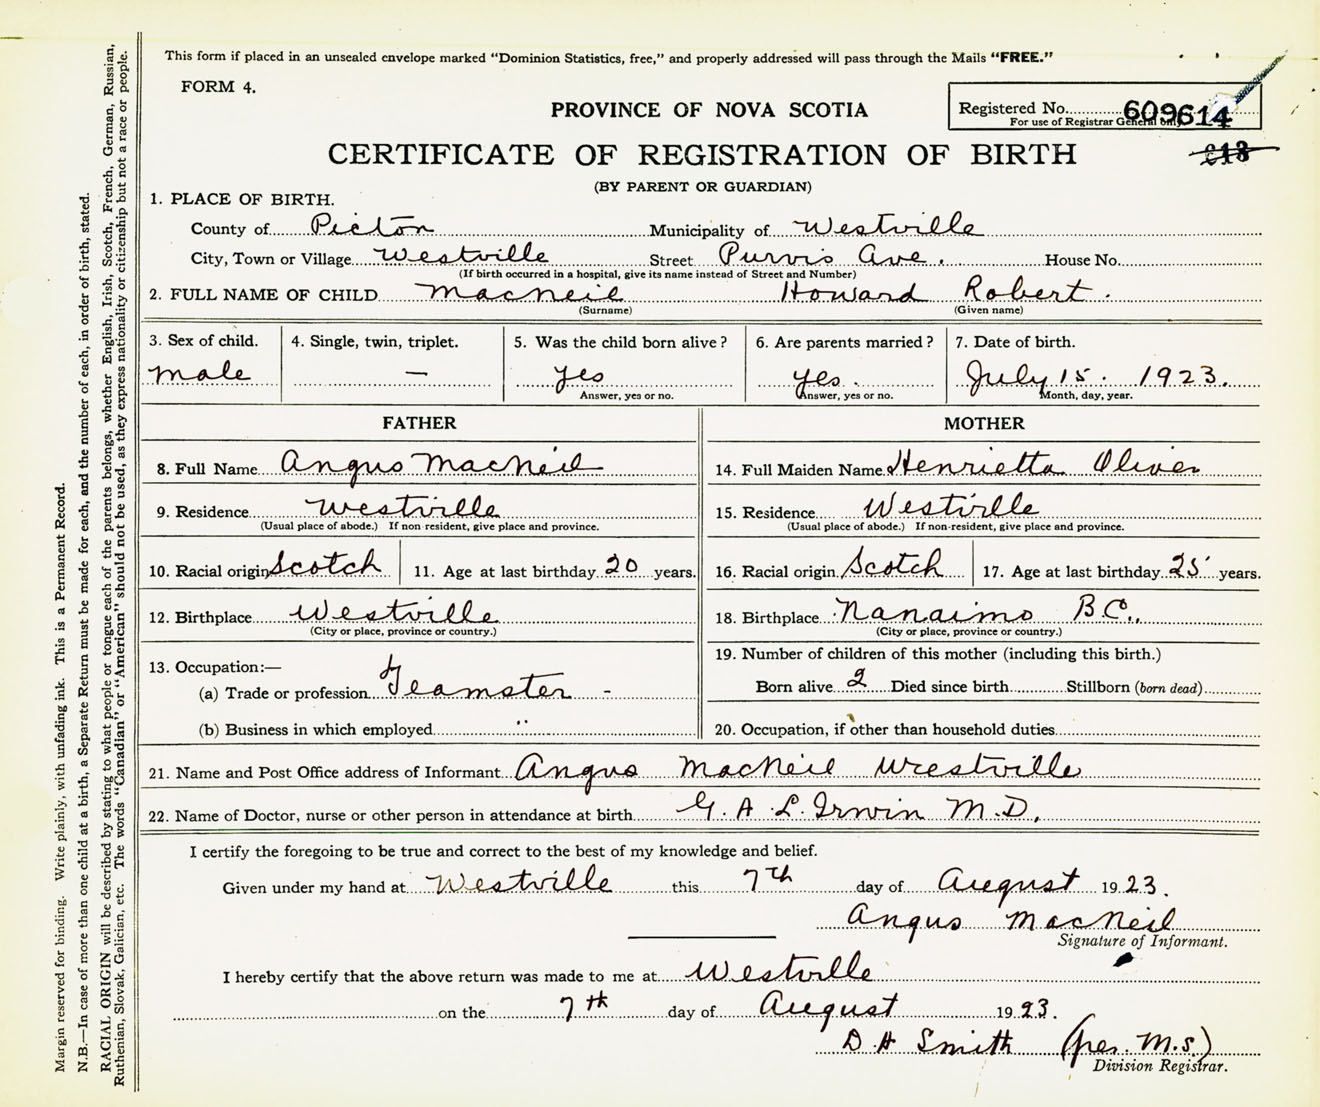 This form if placed in an unsealed envelope marked "Dominion Statistics, free," and properly addressed will pass through the Mails "FREE."
FORM 4.
PROVINCE OF NOVA SCOTIA
Registered No. 609614
For use of Registrar General only.
CERTIFICATE OF REGISTRATION OF BIRTH
213
(BY PARENT OR GUARDIAN)
1. PLACE OF BIRTH.
County of Pictou Municipality of Westville
City, Town or Village Westville Street Purvis Ave. House No.
(If birth occurred in a hospital, give its name instead of Street and Number)
2. FULL NAME OF CHILD MacNeil Howard Robert.
(Surname) (Given name)
3. Sex of child. 4. Single, twin, triplet. 5. Was the child born alive? 6. Are parents married? 7. Date of birth.
male — yes yes. July 15. 1923.
Answer, yes or no. Answer, yes or no. Month, day, year.
FATHER MOTHER
8. Full Name Angus MacNeil 14. Full Maiden Name Henrietta Oliver
9. Residence Westville 15. Residence Westville
(Usual place of abode.) If non-resident, give place and province. (Usual place of abode.) If non-resident, give place and province.
10. Racial origin Scotch 11. Age at last birthday 20 years. 16. Racial origin Scotch 17. Age at last birthday 25 years.
12. Birthplace Westville 18. Birthplace Nanaimo B.C.
(City or place, province or country.) (City or place, province or country.)
13. Occupation:— 19. Number of children of this mother (including this birth.)
(a) Trade or profession Teamster - Born alive 2 Died since birth Stillborn (born dead)
(b) Business in which employed " 20. Occupation, if other than household duties
21. Name and Post Office address of Informant Angus MacNeil Westville
22. Name of Doctor, nurse or other person in attendance at birth G. A. L. Irwin M.D.
I certify the foregoing to be true and correct to the best of my knowledge and belief.
Given under my hand at Westville this 7th day of August 1923.
Angus MacNeil
Signature of Informant.
I hereby certify that the above return was made to me at Westville
on the 7th day of August 1923.
D H Smith (per. M.S.)
Division Registrar.
Margin reserved for binding. Write plainly, with unfading ink. This is a Permanent Record.
N.B.—In case of more than one child at a birth, a Separate Return must be made for each, and the number of each, in order of birth, stated.
RACIAL ORIGIN will be described by stating to what people or tongue each of the parents belongs, whether English, Irish, Scotch, French, German, Russian,
Ruthenian, Slovak, Galician, etc. The words "Canadian" or "American" should not be used, as they express nationality or citizenship but not a race or people.